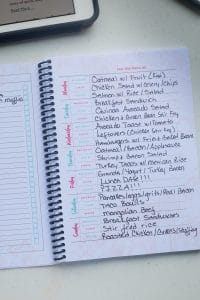 muffin
Monday
Oatmeal w/ Fruit
Chicken Salad w/ Celery/Chips
Salmon w/ Rice/Salad
Tuesday
Breakfast Sandwich
Quinoa Avocado Salad
Chicken & Green Bean Stir Fry
Wednesday
Avocado Toast w/ Tomato
Leftovers (Chicken Stir Fry)
Hamburgers w/ Fruit & Baked Beans
Thursday
Oatmeal/Bacon/Applesauce
Shrimp & Bacon Salad
Turkey Tacos w/ Mexican Rice
Friday
Granola/Yogurt/Turkey Bacon
Lunch Date!!!
PIZZA!!!
Saturday
Pancakes/eggs/grits/Bacon
Taco Bowls!
Mongolian Beef
Sunday
Breakfast Sandwiches
Stir fried rice
Roasted Chicken/Greens/Stuffing